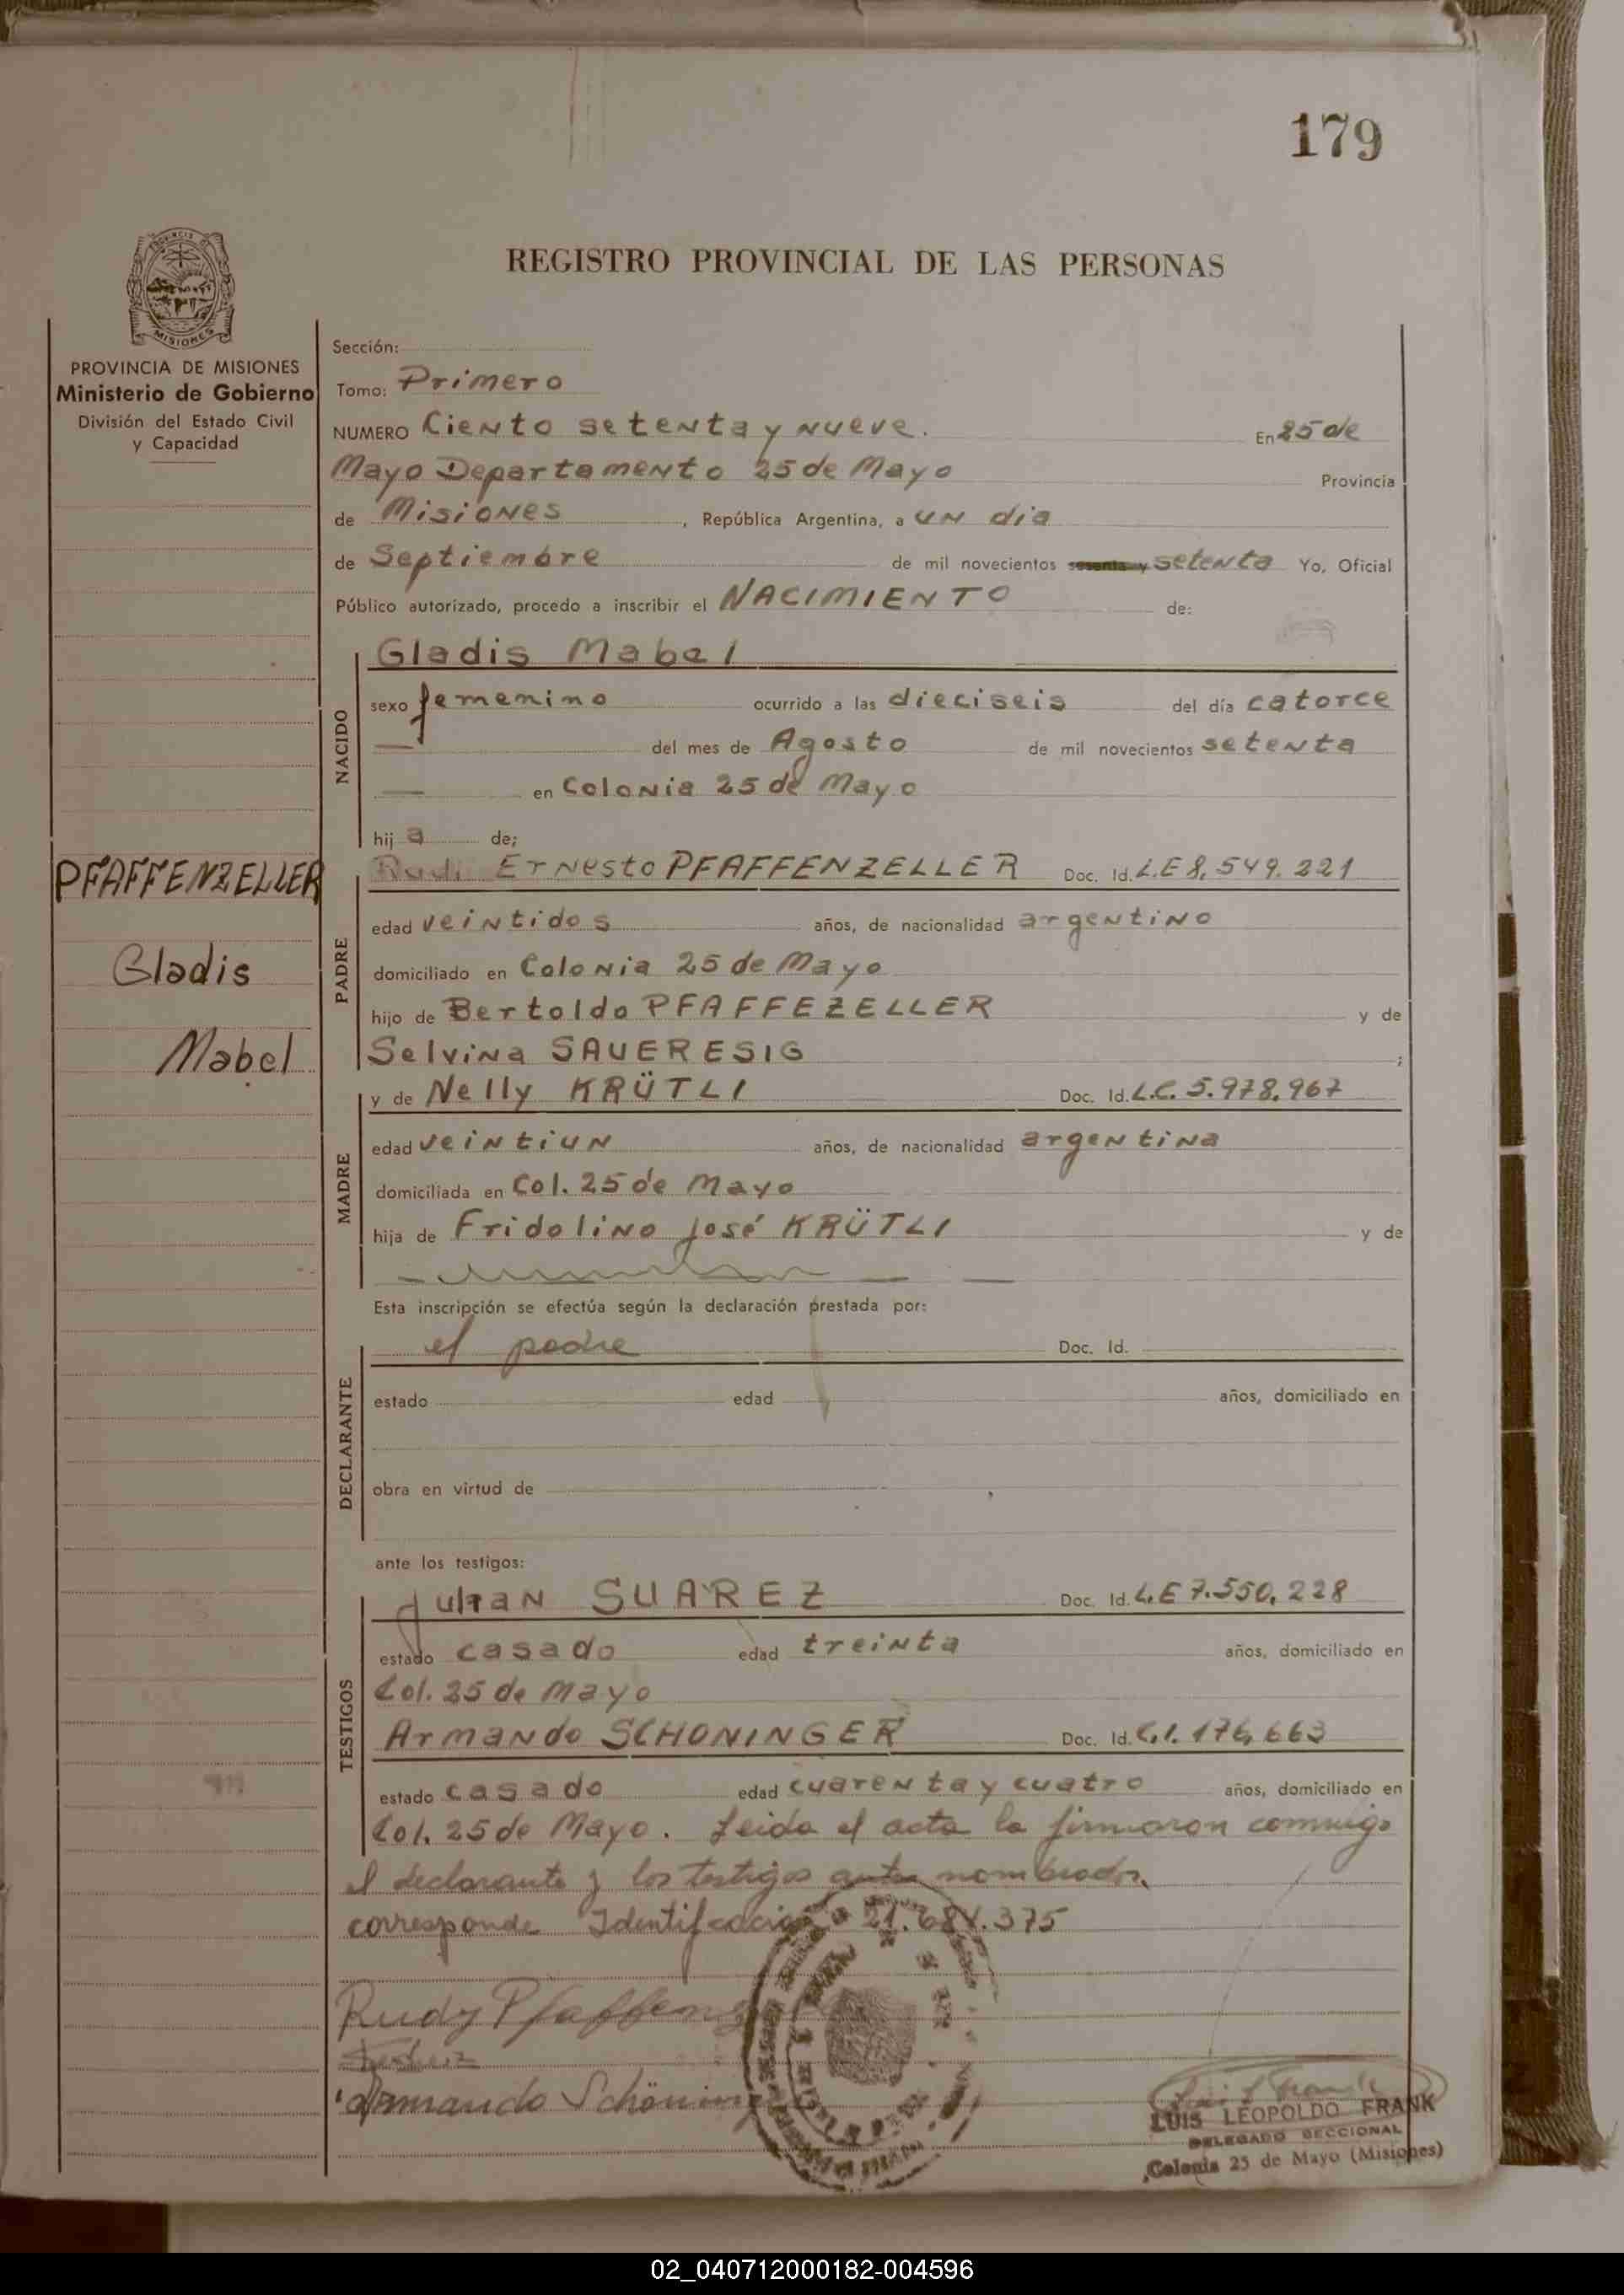 179
REGISTRO PROVINCIAL DE LAS PERSONAS
MISIONES
PROVINCIA DE MISIONES
Ministerio de Gobierno
División del Estado Civil
y Capacidad
PFAFFENZELLER
Gladis
Mabel
Sección:
Tomo: Primero
NUMERO Ciento setenta y nueve. En 25 de
Mayo Departamento 25 de Mayo Provincia
de Misiones, República Argentina, a un día
de Septiembre de mil novecientos sesenta y setenta Yo, Oficial
Público autorizado, procedo a inscribir el NACIMIENTO de:
NACIDO
Gladis Mabel
sexo femenino ocurrido a las dieciseis del día catorce
— del mes de Agosto de mil novecientos setenta
— en Colonia 25 de Mayo
hija de;
PADRE
Rudi Ernesto PFAFFENZELLER Doc. Id. L.E 8.549.221
edad veintidos años, de nacionalidad argentino
domiciliado en Colonia 25 de Mayo
hijo de Bertoldo PFAFFEZELLER y de
Selvina SAUERESIG ;
MADRE
y de Nelly KRÜTLI Doc. Id. L.C. 5.978.967
edad veintiun años, de nacionalidad argentina
domiciliada en Col. 25 de Mayo
hija de Fridolino José KRÜTLI y de
Esta inscripción se efectúa según la declaración prestada por:
DECLARANTE
el padre Doc. Id.
estado edad años, domiciliado en
obra en virtud de
ante los testigos:
TESTIGOS
Julian SUAREZ Doc. Id. L.E 7.550.228
estado casado edad treinta años, domiciliado en
Col. 25 de Mayo
Armando SCHONINGER Doc. Id. C.I. 176,663
estado casado edad cuarenta y cuatro años, domiciliado en
Col. 25 de Mayo. Leida el acta la firmaron conmigo
el declarante y los testigos antes nombrados.
corresponde Identificación 21.684.375
Rudy Pfaffenz
Armando Schöning
LUIS LEOPOLDO FRANK
DELEGADO SECCIONAL
Colonia 25 de Mayo (Misiones)
02_040712000182-004596